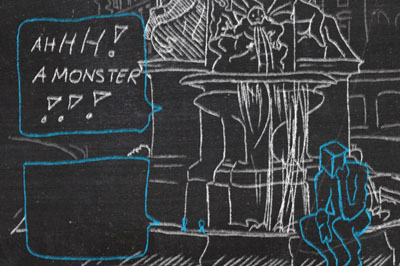 AHHH!
A MONSTER
!!!